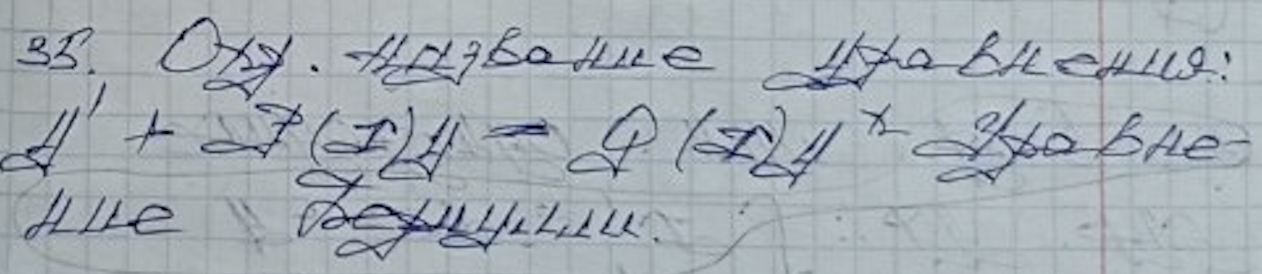 35. Опр. название уравнения:
y' + P(x)y = Q(x)yⁿ Уравне-
ние Бернулли.